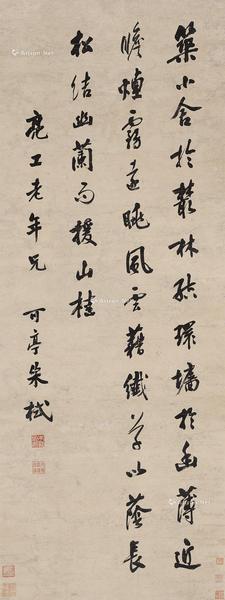 築小舍於叢林結環墉於幽薄近
瞻煙霧遠眺風雲藉纖草以蔭長
松結幽蘭而援山桂
亮工老年兄
可亭朱軾